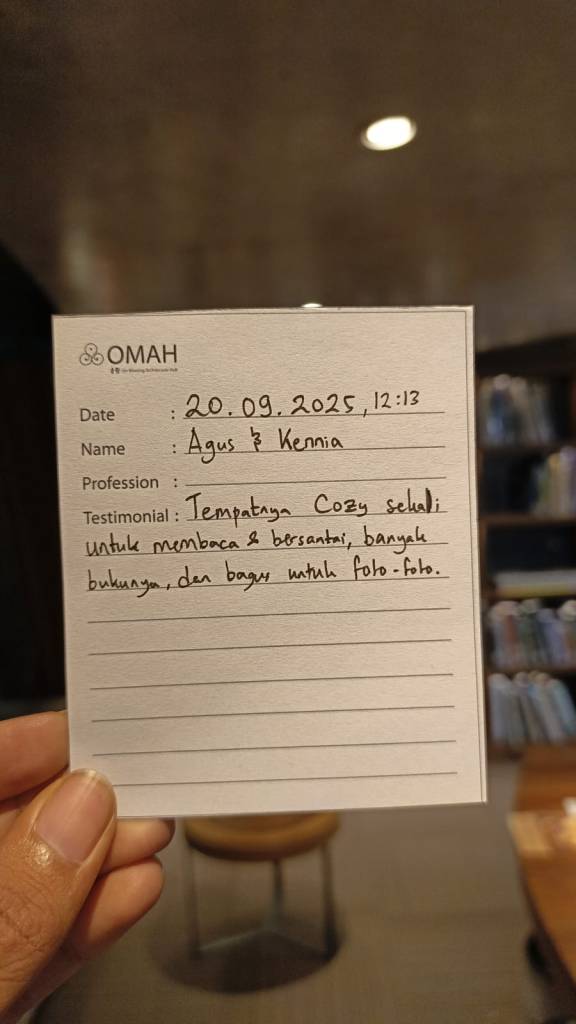 OMAH
Date : 20.09.2025, 12:13
Name : Agus & Kennia
Profession :
Testimonial : Tempatnya Cozy sekali
untuk membaca & bersantai, banyak
bukunya, dan bagus untuk foto-foto.